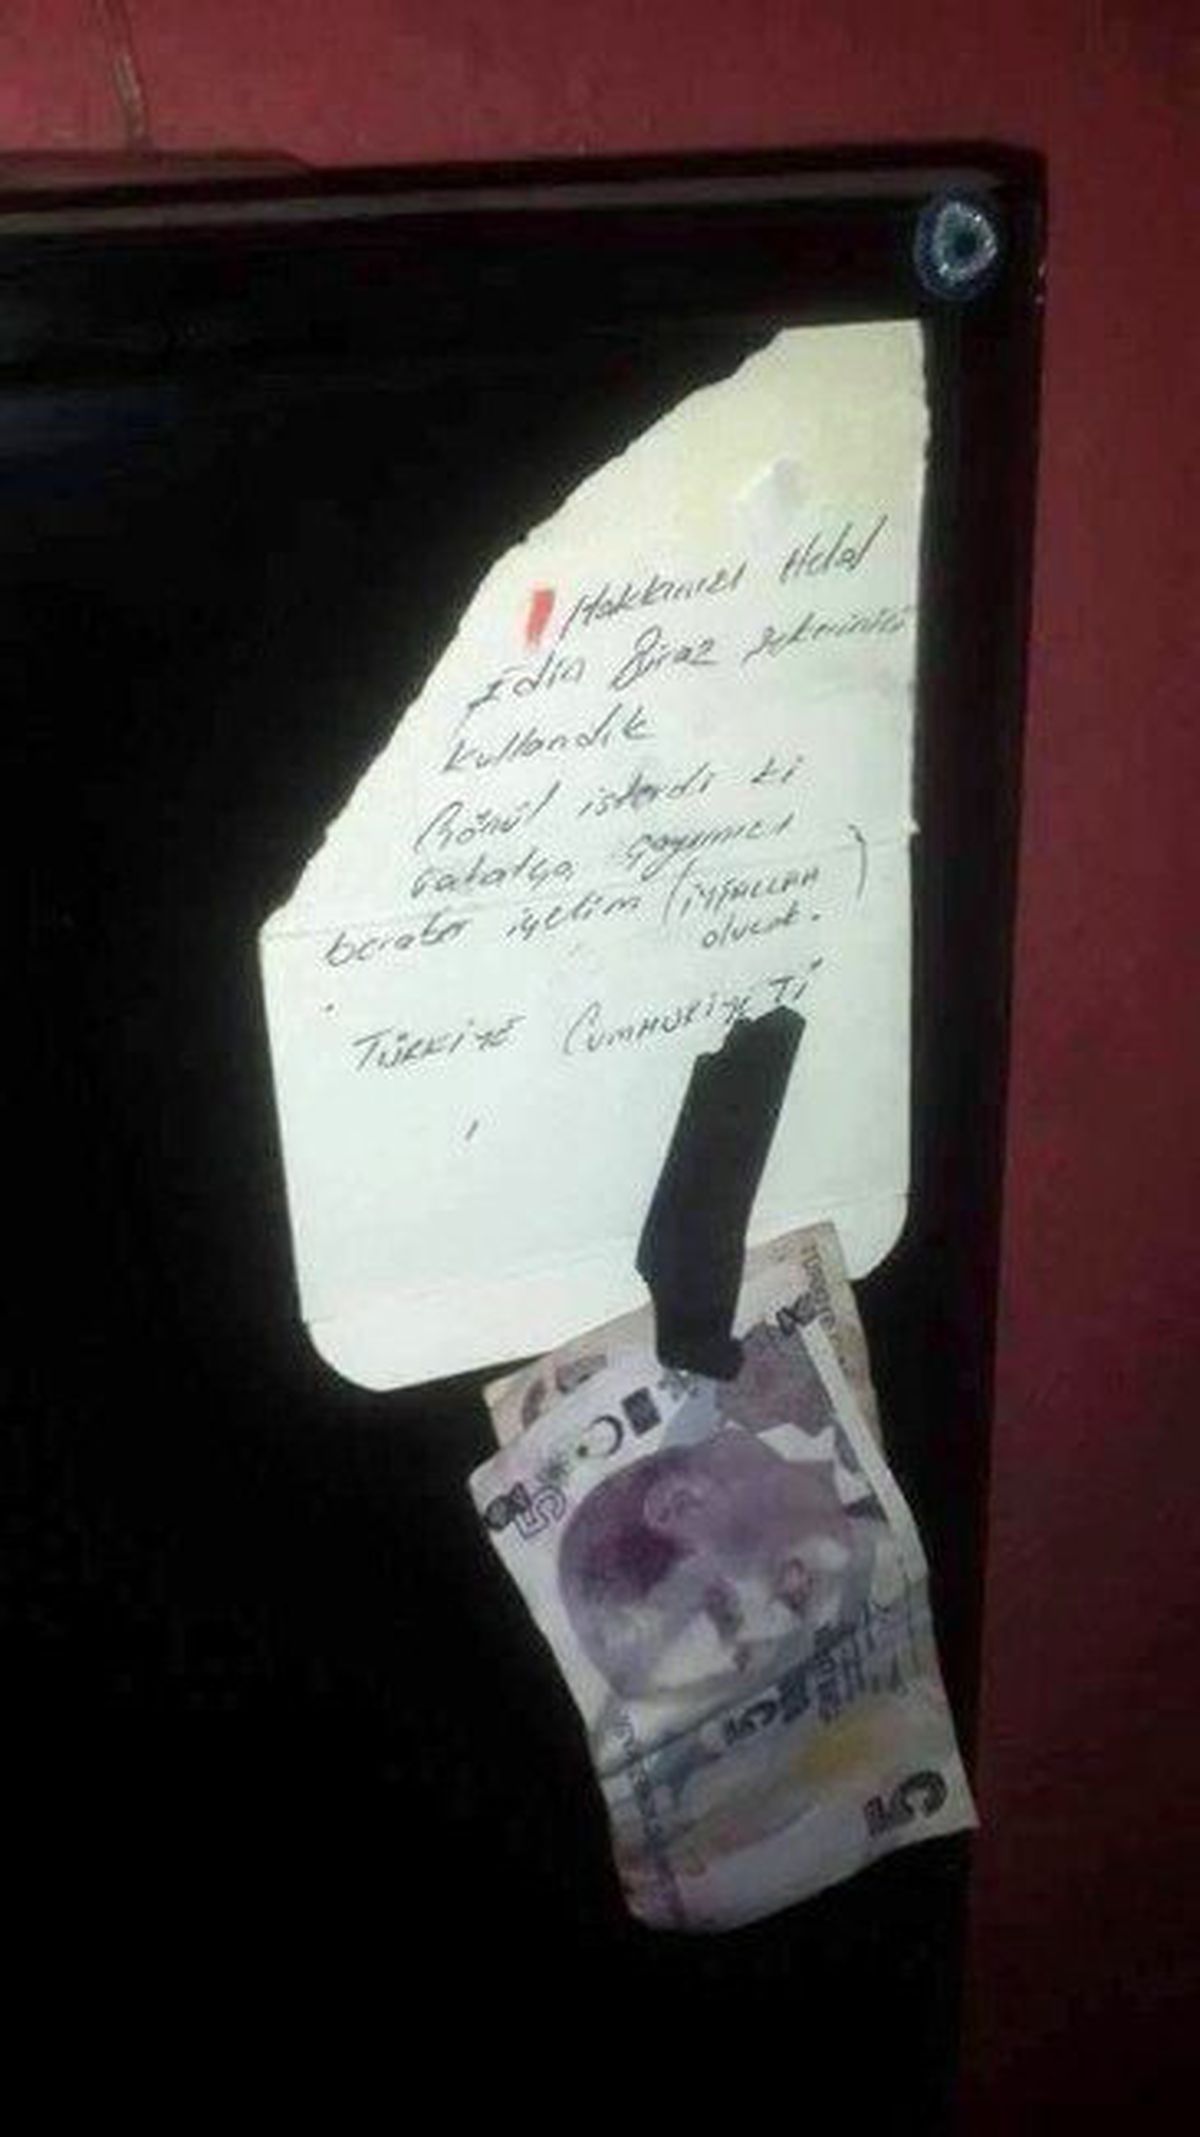 Hakkınızı Helal
Edin Biraz şekerinizi
kullandık
Gönül isterdi ki
rahatça çayımızı
beraber içelim (İNŞALLAH
olucak.)
TÜRKİYE CUMHURİYETİ
5
5